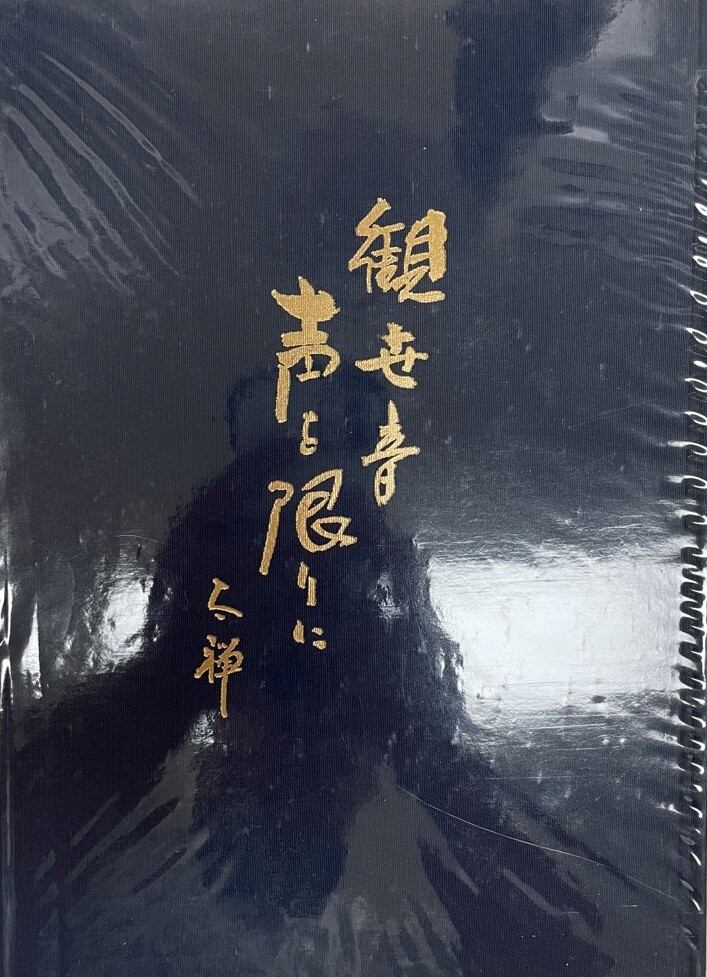 観世音
声を限りに
禅